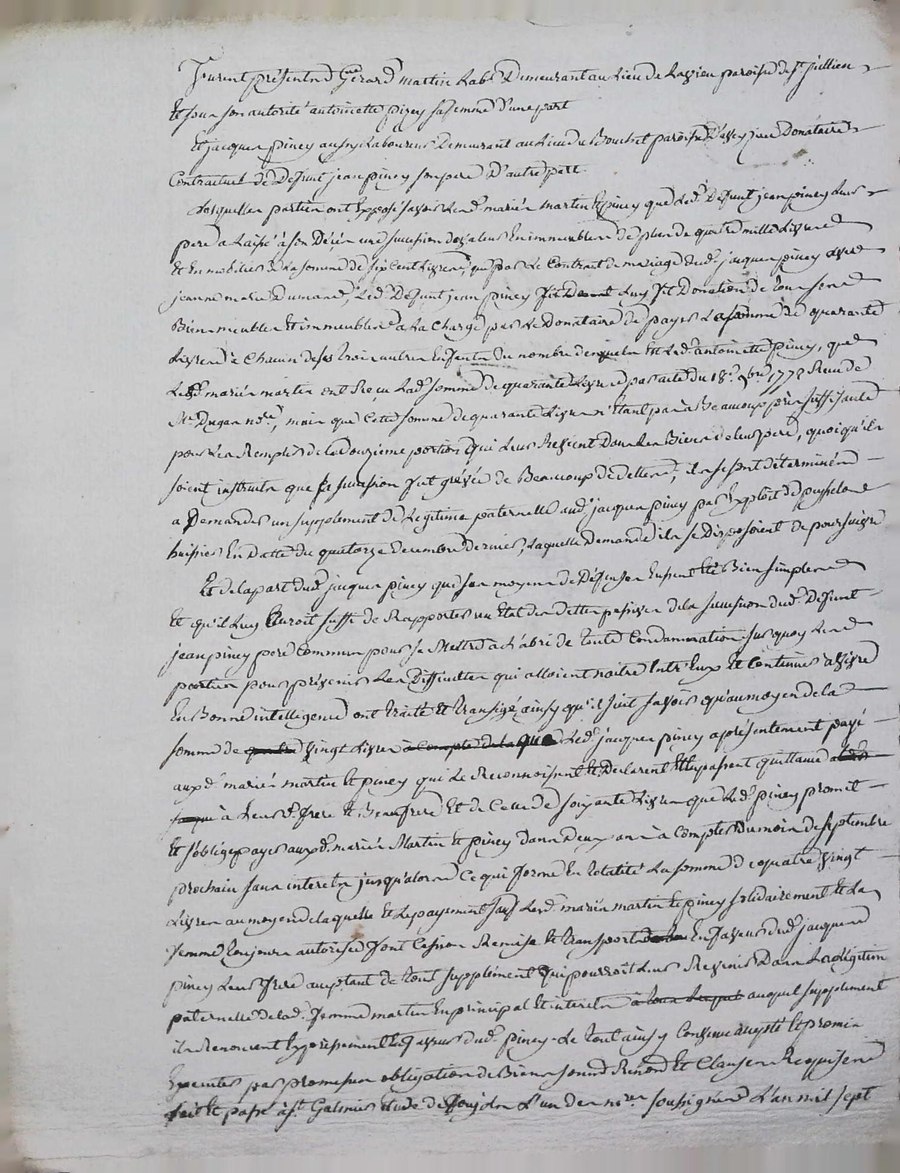 furent présents Gérard martin Labr Demeurant au lieu de Razieu paroisse de St jullien
Et sous son autorité antoinette piney sa femme d'une part
Et jacques piney aussy Laboureur Demeurant au lieu du Bouchet paroisse D'avezieu Donataire
Contractuel de Deffunt jean piney son pere D'autre part
Lesquelles parties ont Exposé savoir Lesd. mariés martin Et piney que Led. Deffunt jean piney Leur
pere a Laissé à son Décés une succession de valeur En immeubles de plus de quatre mille Livres
Et En mobilier de La somme de six Cent Livres, que par Le Contrat de mariage dud. jacques piney avec
jeanne marie Dumare, Led. Deffunt jean piney fit Luy fit Donation de tous ses
Biens meubles Et immeubles à La Charge par Le Donataire de payer La somme de quarante
Livres à Chacun de ses trois autres Enfants du nombre desquels Est Lad. antoinette piney, que
Lesd. mariés martin ont Reçu Lad. somme de quarante Livres par acte du 18e. 9bre 1772 Reçu
Me. Dugas nore, mais que Cette somme de quarante Livres n'Etant pas à Beaucoup près suffisante
pour Les Remplir de la Douzieme portion qui Leur Revient Dans Les Biens de leur pere, quoiqu'ils
soient instruits que sa succession fut grévée de Beaucoup de dettes, ils se sont déterminés
a Demander un supplement de Legitime paternelle aud. jacques piney par Exploit de
huissier En datte du quatorze Decembre Dernier, Laquelle Demande ils se Disposoient de poursuivre
Et de la part dud. jacques piney que ses moyens de Déffenses Eussent Eté Bien simples
Et qu'il Luy Auroit suffi de Rapporter un Etat des dettes passives de la succession dud. Deffunt
jean piney pere Commun pour se Mettre à L'abri de toute Condamnation, sur quoy Les
parties pour prévenir Les Difficultés qui alloient naitre Entr'Eux Et Continuer à vivre
En Bonne intelligence ont traité Et transigé ainsy qu'il suit savoir qu'au moyen de la
somme de vingt Livres à Compte de laquelle Led. jacques piney a présentement payé
auxd. mariés martin Et piney qui Le Reconnoissent Et Déclarent Et En passent quittance
à Leurd. frere Et Beaufrere Et de Celle de soixante Livres que Led. piney promet
Et s'oblige payer auxd. mariés Martin Et piney dans Deux ans à Compter Du mois de septembre
prochain sans interets jusqu'alors Ce qui forme En totalité La somme de quatre vingt
Livres au moyen de laquelle Et Le payement sauf Lesd. mariés martin Et piney solidairement Et La
femme toujours autorisée font Cession Remise Et transport En faveur dud. jacques
piney Leur frere acceptant de tout supplément qui pourroit Leur Revenir Dans La Légitime
paternelle de lad. femme martin En principal Et interets auquel supplément
ils Renoncent Expressement En faveur dud. piney. Le tout ainsy Convenu accepté Et promis
Executer par promesses obligation de Biens soumis Renond. Et Clauses Requises
fait Et passé à St. Galmier Etude de L'un des nores. soussignés L'an mil sept